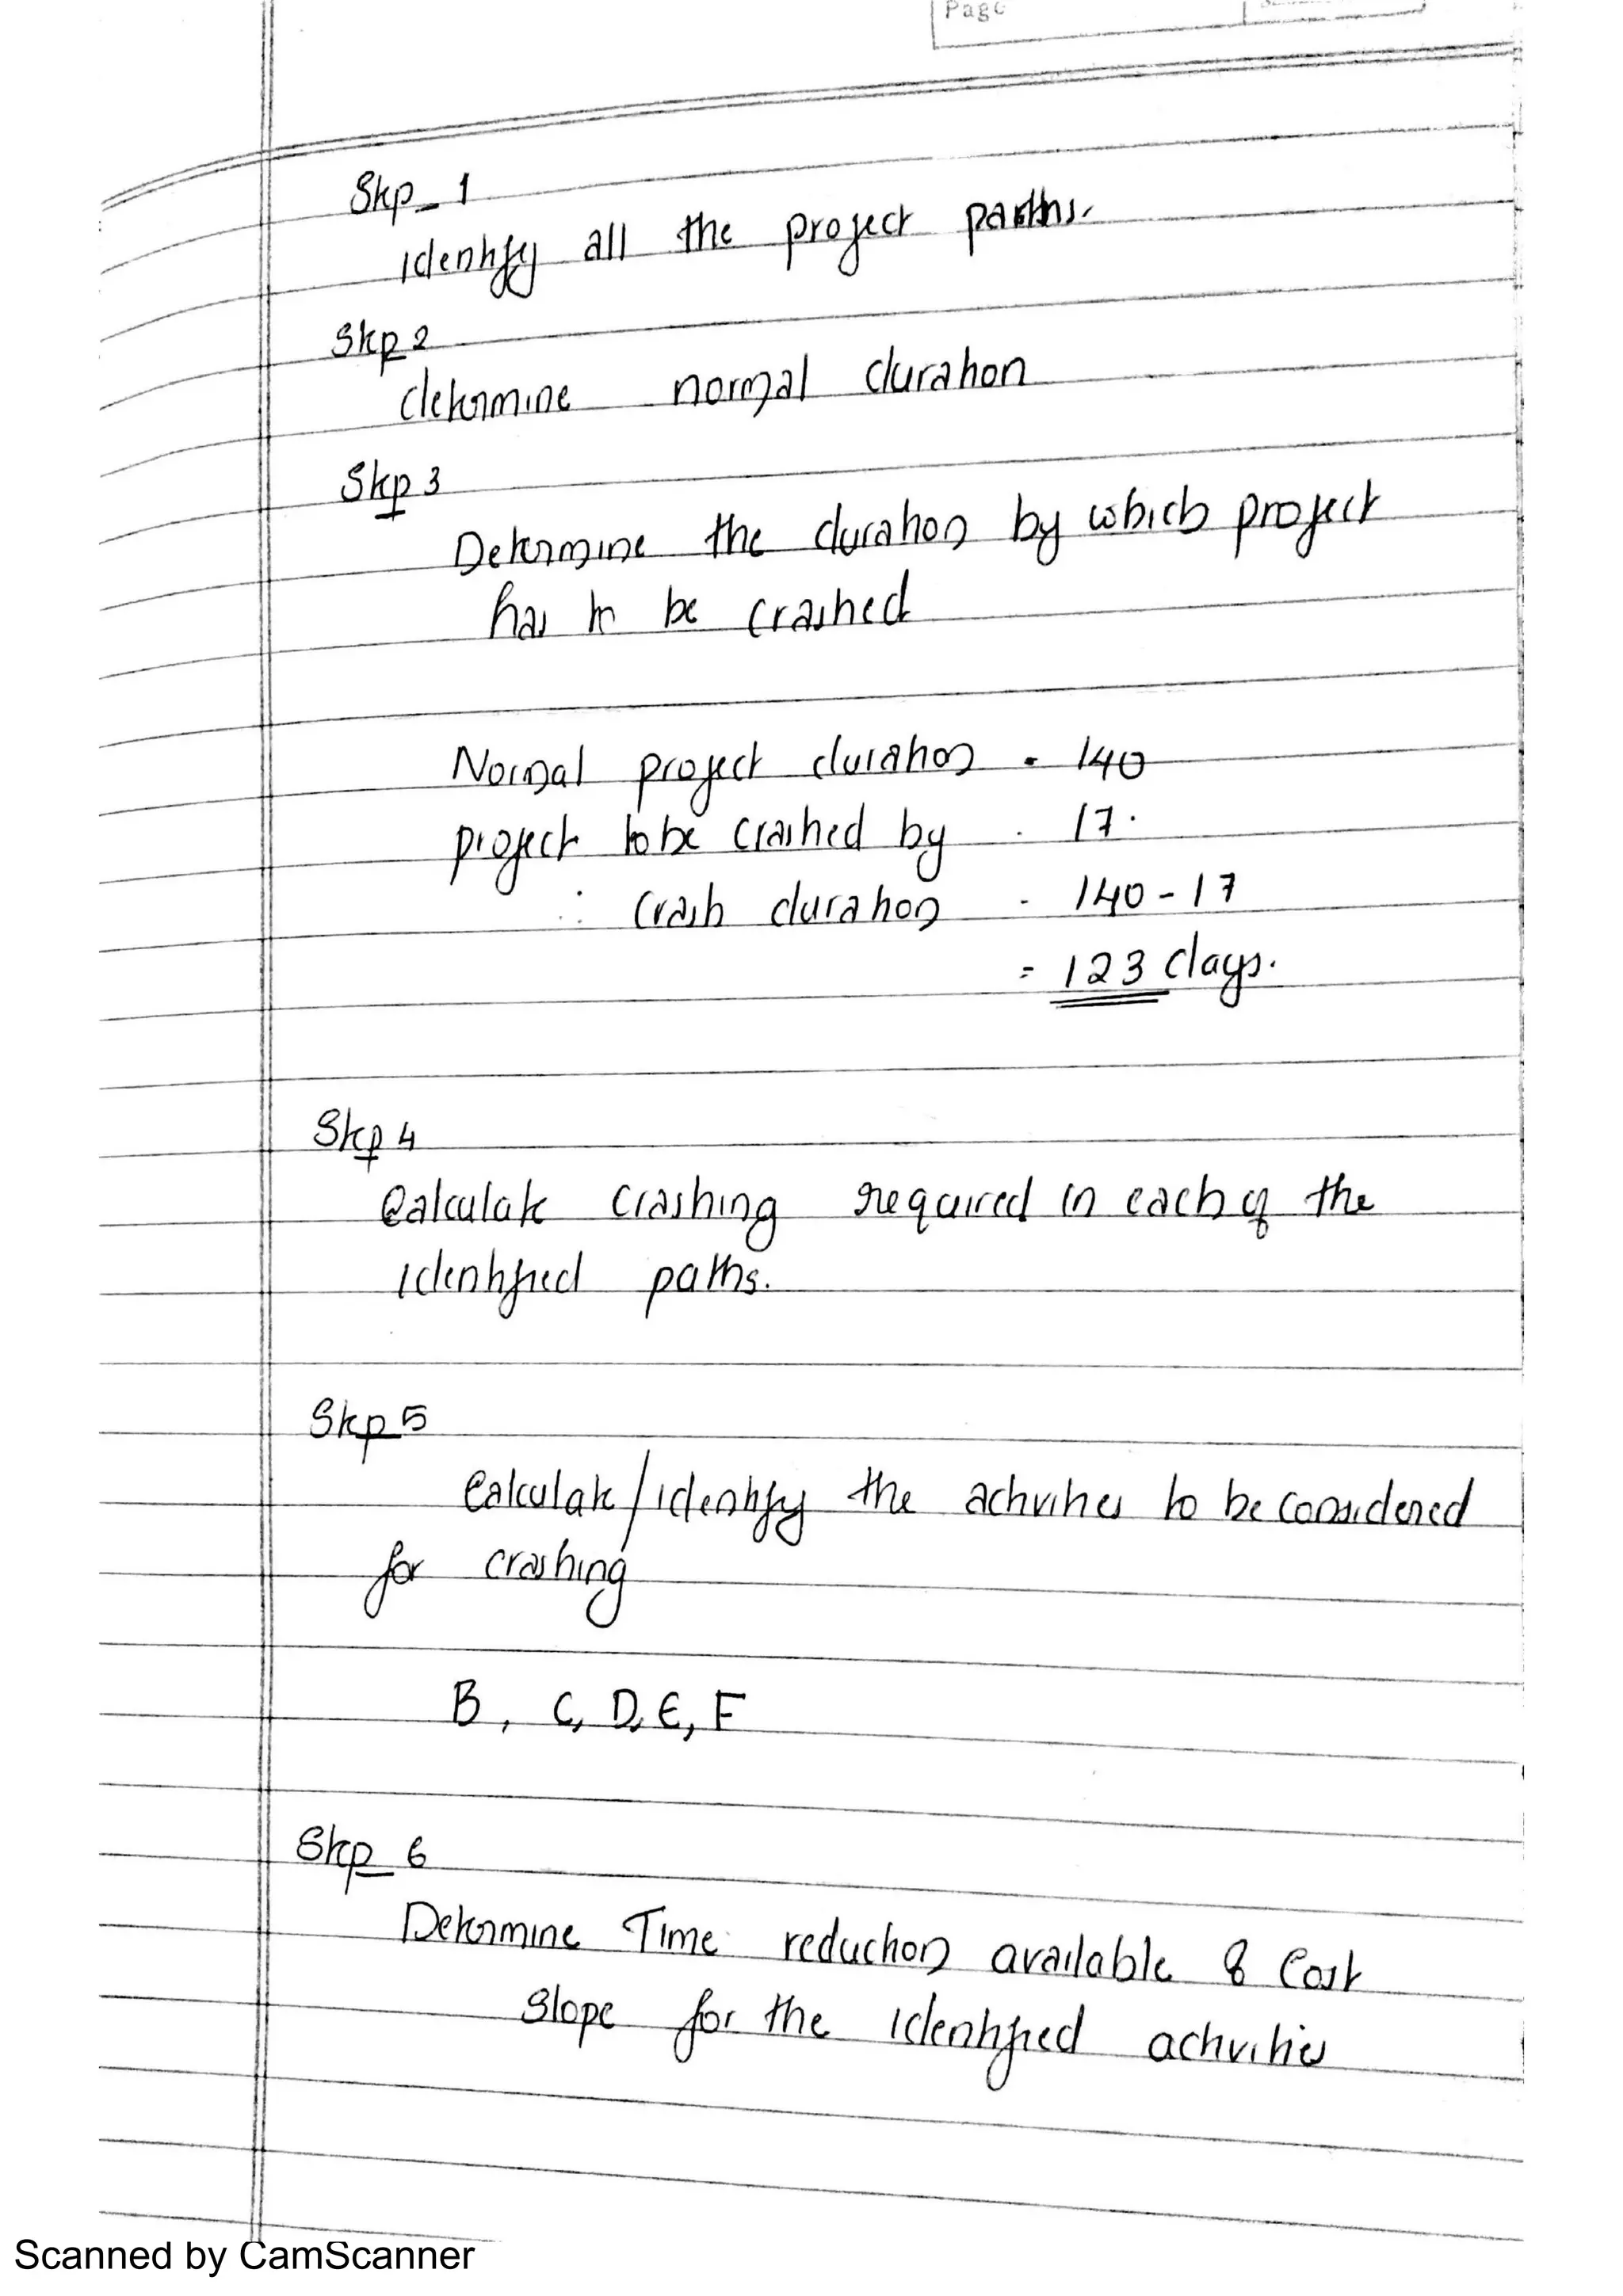 Page
Step 1
identify all the project paths.
Step 2
determine normal duration
Step 3
Determine the duration by which project
has to be crashed
Normal project duration = 140
project to be crashed by = 17.
∴ Crash duration = 140 - 17
= 123 days.
Step 4
Calculate crashing required in each of the
identified paths.
Step 5
Calculate/identify the activities to be considered
for crashing
B, C, D, E, F
Step 6
Determine Time reduction available & Cost
slope for the identified activities
Scanned by CamScanner